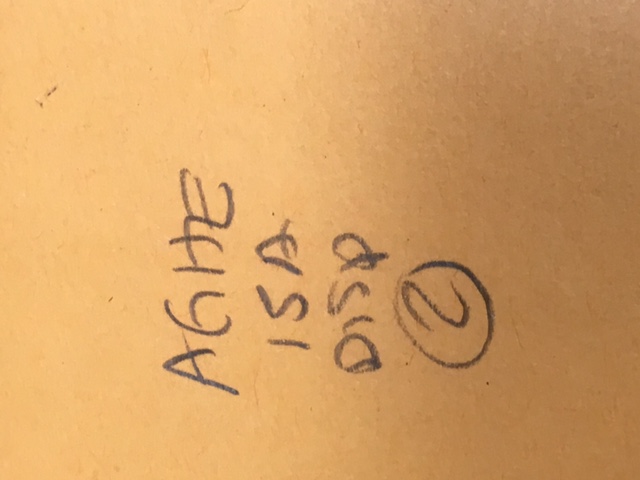 AGHE
15A
DISP
2